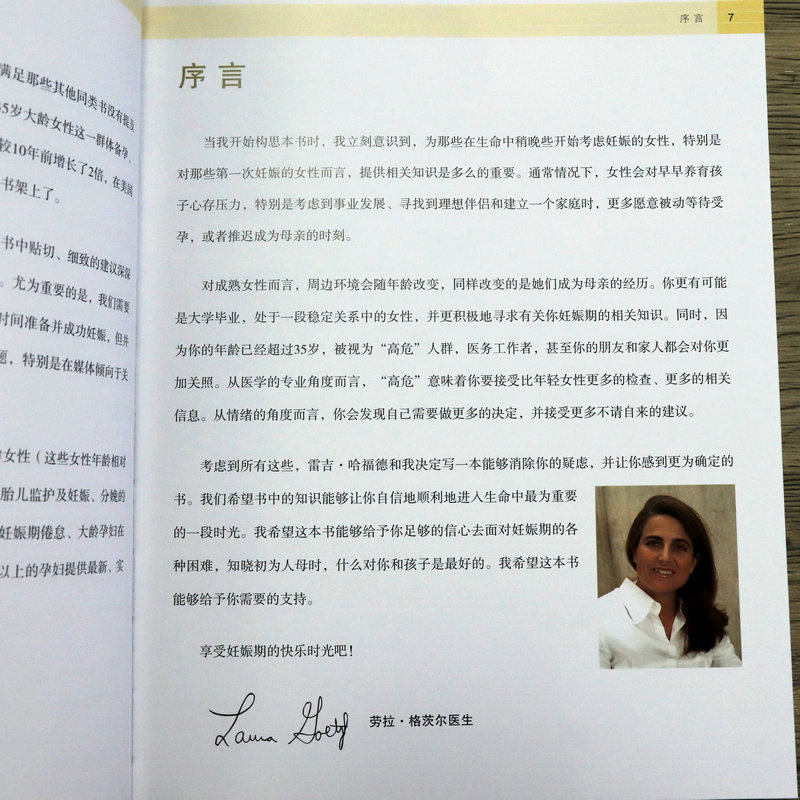 满足那些其他同类书没有提及
35岁大龄女性这一群体备孕、
较10年前增长了2倍，在美国
书架上了。
书中贴切、细致的建议深深
。尤为重要的是，我们需要
时间准备并成功妊娠，但并
题，特别是在媒体倾向于关
女性（这些女性年龄相对
胎儿监护及妊娠、分娩的
妊娠期倦怠、大龄孕妇在
以上的孕妇提供最新、实
序言 7
序言
当我开始构思本书时，我立刻意识到，为那些在生命中稍晚些开始考虑妊娠的女性，特别是
对那些第一次妊娠的女性而言，提供相关知识是多么的重要。通常情况下，女性会对早早养育孩
子心存压力，特别是考虑到事业发展、寻找到理想伴侣和建立一个家庭时，更多愿意被动等待受
孕，或者推迟成为母亲的时刻。
对成熟女性而言，周边环境会随年龄改变，同样改变的是她们成为母亲的经历。你更有可能
是大学毕业，处于一段稳定关系中的女性，并更积极地寻求有关你妊娠期的相关知识。同时，因
为你的年龄已经超过35岁，被视为“高危”人群，医务工作者，甚至你的朋友和家人都会对你更
加关照。从医学的专业角度而言，“高危”意味着你要接受比年轻女性更多的检查、更多的相关
信息。从情绪的角度而言，你会发现自己需要做更多的决定，并接受更多不请自来的建议。
考虑到所有这些，雷吉·哈福德和我决定写一本能够消除你的疑虑，并让你感到更为确定的
书。我们希望书中的知识能够让你自信地顺利地进入生命中最为重要
的一段时光。我希望这本书能够给予你足够的信心去面对妊娠期的各
种困难，知晓初为人母时，什么对你和孩子是最好的。我希望这本书
能够给予你需要的支持。
享受妊娠期的快乐时光吧！
Laura Goetzl 劳拉·格茨尔医生